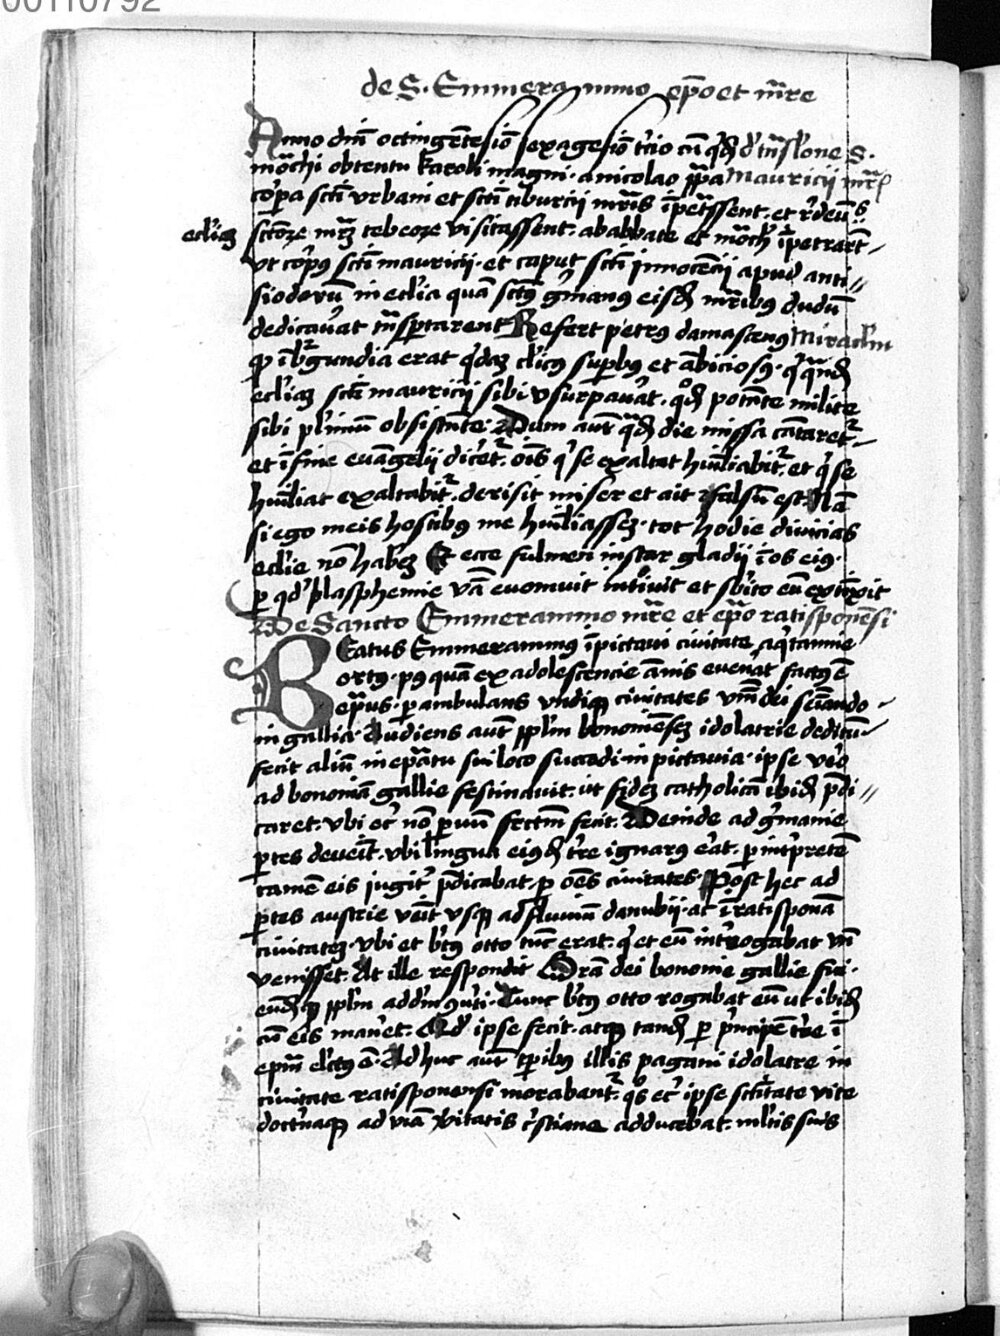 00110792
de S. Emmerammo ep̄o et m̄re
Anno dm̄ octingētesīo sexagesīo t'cio cū qd̄ d' trn̄slone S.
mōchi obtentu karoli magni · a nicolao pp̄a Mauricii mr̄
cōrpa sctī vrbani et sctī tiburcii mr̄is īpet'ssent. et
eccliaz sctōrꝫ mr̄ꝫ tebeorꝫ visitassent. ab abbate et mōch īpetrar̄t
vt corpꝰ sctī mauricii · et caput sctī innocēcii apud anti//
siodorū in ecclia quā sctꝰ g'manꝰ eisdꝫ mr̄ibꝰ dudū
dedicauat trn̄sportarent Refert petrꝰ damascenꝰ Miraclm
ꝙ ī b'gundia erat q'daꝫ cl'icꝰ suꝑbꝰ et ābiciosꝰ ·
eccliaꝫ sctī mauricii sibi vsurpauat. potente milite
sibi pl'imū obsistente. Dum aut̄ qd̄ die missa cātaret'
et ī fine euāgelii dicet'. oīs q' se exaltat hūiliabit'. et q' se
hūiliat exaltabit'. derisit miser et ait ꝫ falsū est. Nā
si ego meis hostibꝰ me hūiliasseꝫ · tot hodie diuicias
ecclie nō haberꝫ Et ecce fulmen instar gladii ī os eiꝰ ·
ꝑ qd' blasphemie vā euomuit intuit et s'bito eū extīxit
De Sancto Emmerammo mr̄e et ep̄o ratisponēsi
Beatus Emmerammꝰ ī pictaui ciuitate aq'tannie
ortꝰ · pꝰquā ex adolescencie ānis euenat factꝰ ē
ep̄us · ꝑambulans vndiqꝫ ciuitates vm̄ dei seīando
in gallia · Audiens aut̄ pp̄lm bonomēseꝫ idolatrie deditū
fecit aliū in ep̄atu sui loco succedi in pictauia · ipse v'o
ad bonomā gallie festinauit. ut fideꝫ catholicā ibidꝫ p̄di//
caret. vbi ec' nō ꝑuū fcm̄ fecit. Deinde ad g'manie
ꝑtes deueīt. vbi lingua eiꝰdꝫ t're ignarꝰ e'at. ꝑ int'pretē
tamē eis jugit' p̄dicabat. ꝑ oēs ciuitates. Post hec ad
ꝑtes austrie veīt vsqꝫ ad fluuiū danubii · ac ī ratisponā
ciuitateꝫ · vbi et b'tꝰ otto tūc erat. q' et eū int'rogabat vn̄
venisset. At ille respondit Gr̄a dei bonomie gallie fui ·
eundꝫqꝫ pp̄lm ad dm̄ ꝯu'ti. Tunc b'tꝰ otto rogabat eū ut ibidꝫ
cū eis man'et. Qd' ipse fecit. atqꝫ tandꝫ ꝑ p'ncipē t're ī
epm̄ el'ctꝰ ē. Ad huc aut̄ tꝑibꝰ illis pagani idolatre in
ciuitate ratisponensi morabant'. q's ec' ipse sctītate vite
doctr'naqꝫ ad viā v'itatis c'stiane adducebat. ml'tis suis